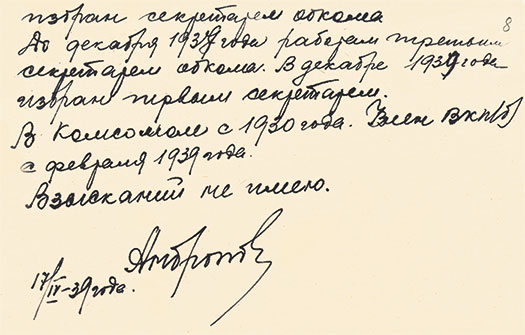 8
избран секретарем обкома
До декабря 1937 года работал третьим
секретарем обкома. В декабре 1937 года
избран первым секретарем.
В Комсомоле с 1930 года. Член ВКП(б)
с февраля 1939 года.
Взысканий не имею.
Андропов
17/IV-39 года.